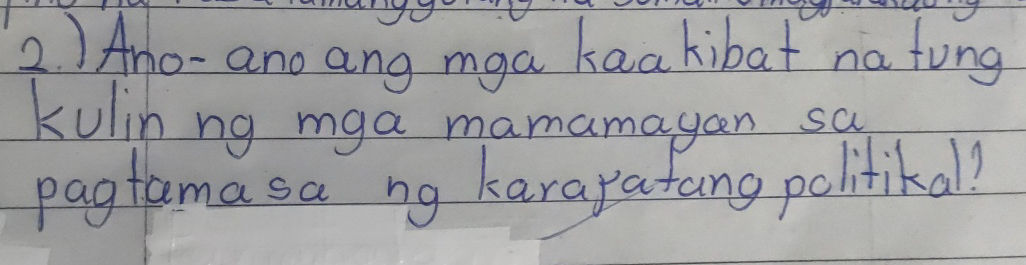 2.) Ano-ano ang mga kaakibat na tung
kulin ng mga mamamayan sa
pagtamasa ng karapatang politikal?